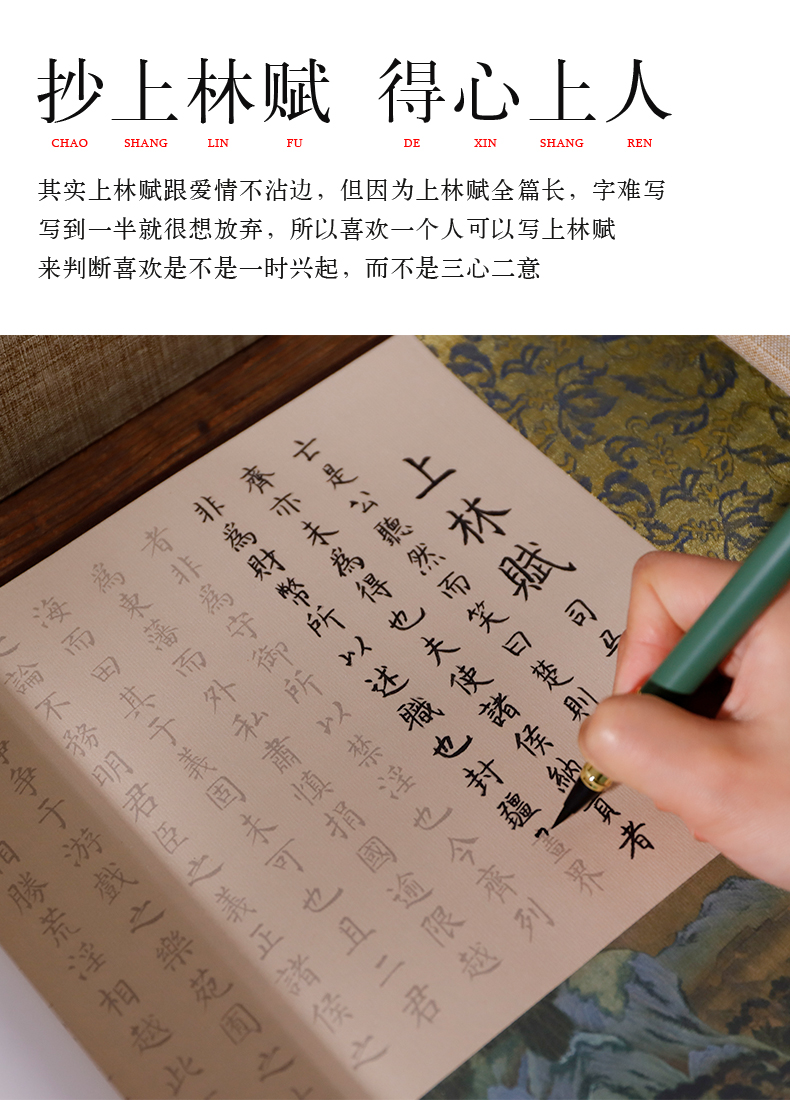 抄上林赋 得心上人
CHAO SHANG LIN FU DE XIN SHANG REN
其实上林赋跟爱情不沾边，但因为上林赋全篇长，字难写
写到一半就很想放弃，所以喜欢一个人可以写上林赋
来判断喜欢是不是一时兴起，而不是三心二意
上林賦司馬
亡是公聽然而笑曰楚則
齊亦未為得也夫使諸侯納貢者
非為財幣所以述職也封疆畫界
者非為守御所以禁淫也今齊列
為東藩而外私肅慎捐國逾限越
海而田其于義固未可也且二君
之論不務明君臣之義正諸侯之
爭于游戲之樂苑囿之
相勝荒淫相越此